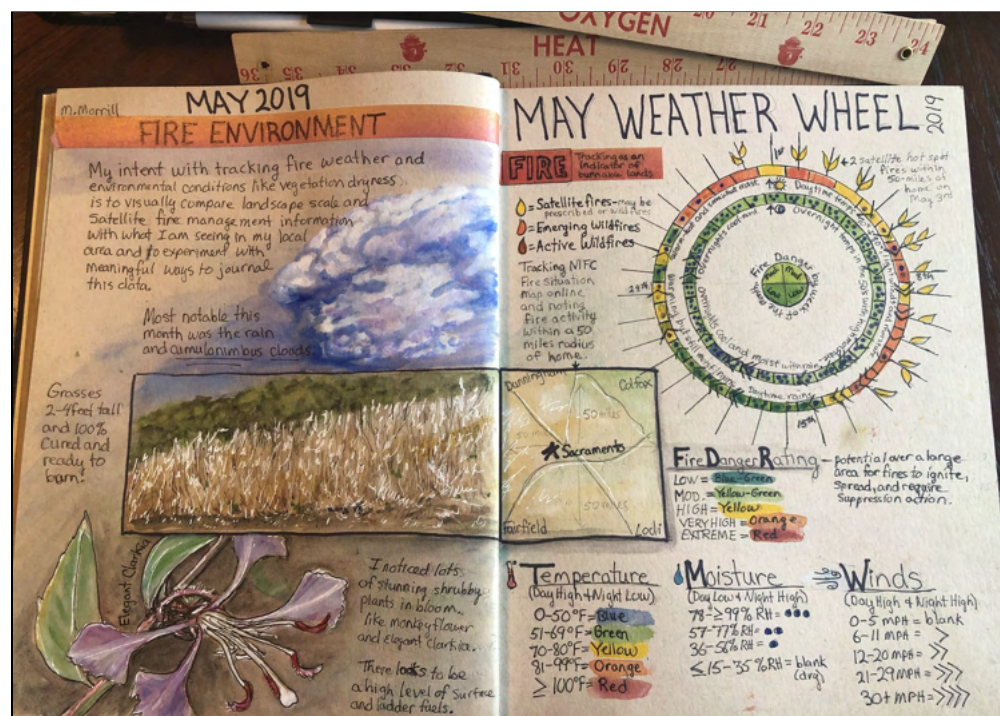 OXYGEN
20 21 22 23 24
HEAT
36 35 34 33 32 31 30 29 28 27
M. Morrill
MAY 2019
FIRE ENVIRONMENT
My intent with tracking fire weather and
environmental conditions like vegetation dryness
is to visually compare landscape scale and
Satellite fire management information
with what I am seeing in my local
area and to experiment with
meaningful ways to journal
this data.
Most notable this
month was the rain
and cumulonimbus clouds.
Grasses
2-4 feet tall
and 100%
Cured and
ready to
burn!
Elegant Clarkia
I noticed lots
of stunning shrubby
plants in bloom.
like monkeyflower
and Elegant Clarkia.
There looks to be
a high level of surface
and ladder fuels.
MAY WEATHER WHEEL
2019
FIRE
Tracking as an
indicator of
burnable lands
= Satellite fires-may be
prescribed or wildfires
= Emerging Wildfires
= Active Wildfires
Tracking NIFC
Fire situation
map online
and noting
fire activity
within a 50
miles radius
of home.
42 satellite hot spot
fires within
50-miles of
home on
May 3rd
1st
8th
15th
Daytime temps
Overnight temps in the 50s with high
Overnights cool and moist with rain
Daytime rains
Fire Danger by week of the
Mod
Low
Low
Dunningan
Colfax
50 miles
50 miles
Sacramento
50 miles
Fairfield
Lodi
Fire Danger Rating - potential over a large
area for fires to ignite,
spread, and require
suppression action.
LOW = Blue-Green
MOD. = Yellow-Green
HIGH = Yellow
VERY HIGH = Orange
EXTREME = Red
Temperature
(Day High & Night Low)
0-50°F = Blue
51-69°F = Green
70-80°F = Yellow
81-99°F = Orange
≥ 100°F = Red
Moisture
(Day Low & Night High)
78-≥99% RH =
57-77% RH =
36-56% RH =
≤15-35% RH = blank
(dry)
Winds
(Day High & Night High)
0-5 mph = blank
6-11 mph = >
12-20 mph = >>
21-29 mph = >>>
30+ mph = >>>>